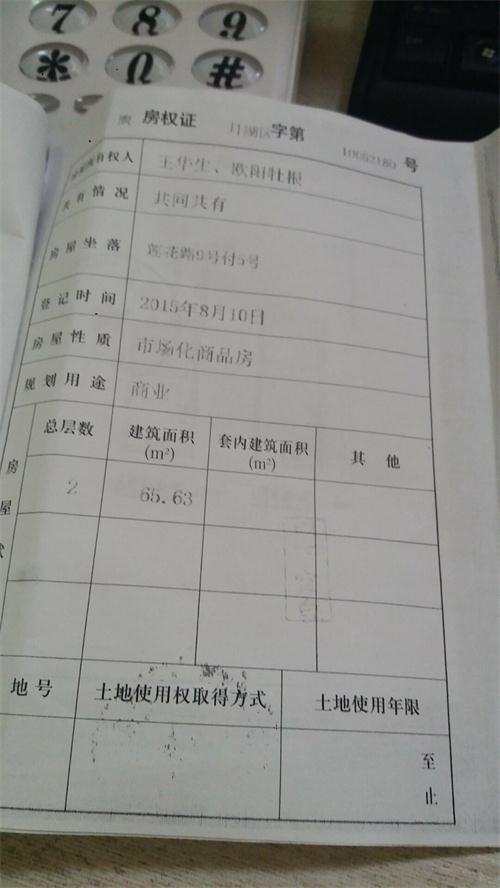 7 8 9
* 0 #
房权证 月湖区字第 10052180 号
房屋所有权人 王华生、欧阳牡根
共有情况 共同共有
房屋坐落 莲花路9号付5号
登记时间 2015年8月10日
房屋性质 市场化商品房
规划用途 商业
房屋状
总层数 建筑面积(m²) 套内建筑面积(m²) 其他
2 65.63
地号 土地使用权取得方式 土地使用年限
至
止